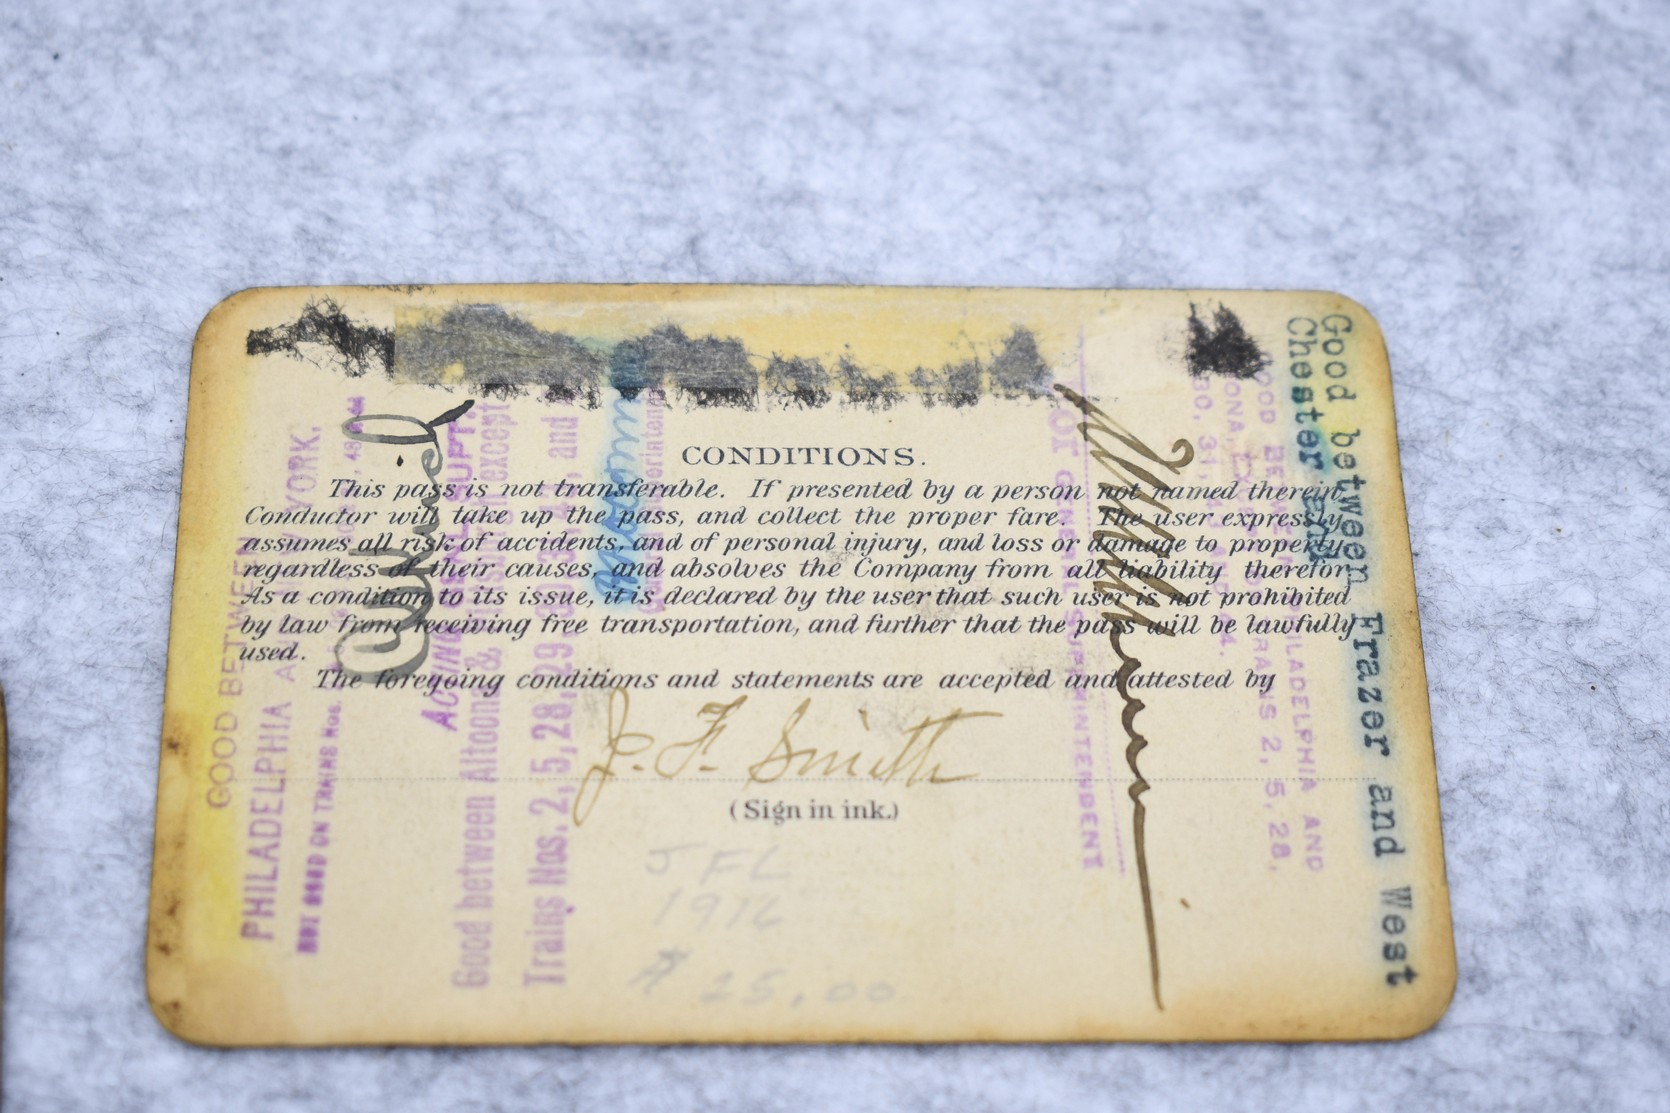 CONDITIONS.
This pass is not transferable. If presented by a person not named therein,
Conductor will take up the pass, and collect the proper fare. The user expressly
assumes all risk of accidents, and of personal injury, and loss or damage to property,
regardless of their causes, and absolves the Company from all liability therefor.
As a condition to its issue, it is declared by the user that such user is not prohibited
by law from receiving free transportation, and further that the pass will be lawfully
used.
The foregoing conditions and statements are accepted and attested by
J. F. Smith
(Sign in ink.)
1916
25.00
GOOD BETWEEN
PHILADELPHIA YORK.
NOT GOOD ON TRAINS NOS.
ACTING SUPT.
Good between Altoona & except
Trains Nos. 2, 5, 28, 29 and
GEN SUPERINTENDENT
PHILADELPHIA AND
TRAINS 2, 5, 28,
30, 31
Good between Frazer and West
Chester